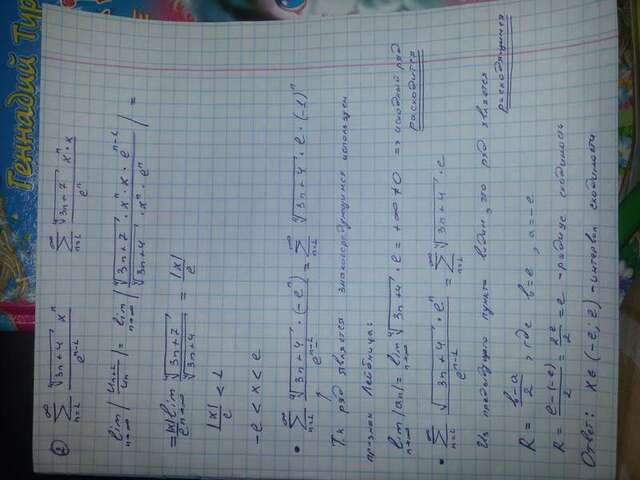 Геннадий Тур
② \sum_{n=1}^{\infty} \frac{\sqrt[4]{3n+4} x^n}{e^{n-1}} \sum_{n=1}^{\infty} \frac{\sqrt[4]{3n+7} x^n \cdot x}{e^n}
\lim_{n→∞} | \frac{u_{n+1}}{u_n} | = \lim_{n→∞} | \frac{\sqrt[4]{3n+7} \cdot x^n \cdot x \cdot e^{n-1}}{\sqrt[4]{3n+4} \cdot x^n \cdot e^n} | =
= \frac{|x|}{e} \lim_{n→∞} \frac{\sqrt[4]{3n+7}}{\sqrt[4]{3n+4}} = \frac{|x|}{e}
\frac{|x|}{e} < 1
-e < x < e
• \sum_{n=1}^{\infty} \frac{\sqrt[4]{3n+4} \cdot (-e^n)}{e^{n-1}} = \sum_{n=1}^{\infty} \sqrt[4]{3n+4} \cdot e \cdot (-1)^n
Т.к ряд является знакочередующимся используем
признак Лейбница:
\lim_{n→∞} |a_n| = \lim_{n→∞} \sqrt[4]{3n+4} \cdot e = +∞ ≠ 0 => исходный ряд
расходится
• \sum_{n=1}^{\infty} \frac{\sqrt{3n+4} \cdot e^n}{e^{n-1}} = \sum_{n=1}^{\infty} \sqrt[4]{3n+4} \cdot e
Из предыдущего пункта видим, что ряд является
расходящимся
R = \frac{b-a}{2}, где b=e, a=-e
R = \frac{e-(-e)}{2} = \frac{2e}{2} = e - радиус сходимости
Ответ: x ∈ (-e; e) - интервал сходимости